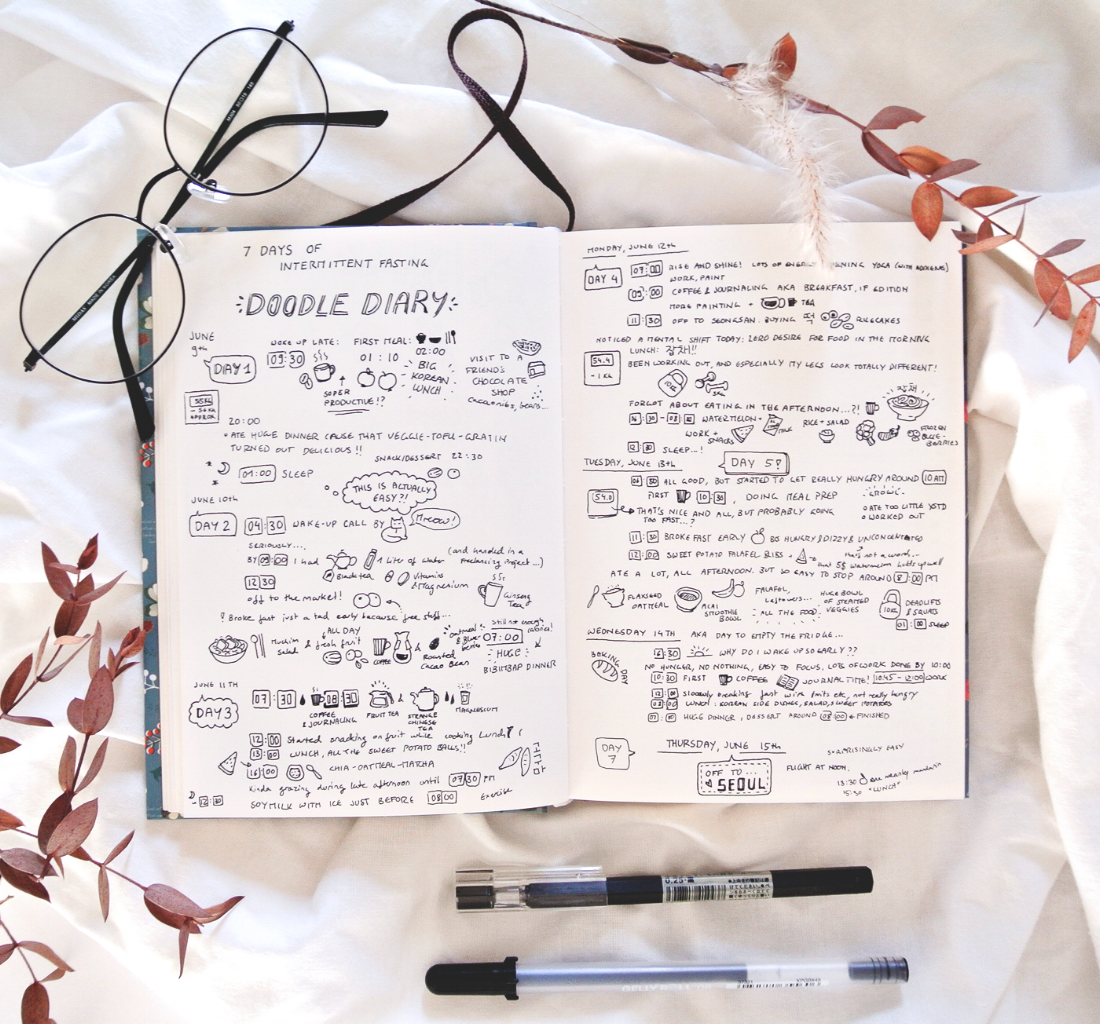 7 DAYS OF
INTERMITTENT FASTING
DOODLE DIARY
JUNE
9th
DAY 1
WOKE UP LATE:
09:30
SUPER
PRODUCTIVE!?
FIRST MEAL:
01:10
02:00
BIG
KOREAN
LUNCH
VISIT TO A
FRIEND'S
CHOCOLATE
SHOP
cacao nibs, beans...
55KG
- 56KG
APPROX.
20:00
• ATE HUGE DINNER CAUSE THAT VEGGIE-TOFU-GRATIN
TURNED OUT DELICIOUS!!
SNACK/DESSERT 22:30
01:00 SLEEP
THIS IS ACTUALLY
EASY?!
JUNE 10th
DAY 2
04:30 WAKE-UP CALL BY
Meow!
SERIOUSLY...
BY 09:00 I had
Black tea
1 Liter of Water
Vitamins
& Magnesium
(and handed in a
freelancing project...)
12:30
off to the market!
Ginseng
Tea
! Broke fast just a tad early because free stuff...
ALL DAY
Salad & fresh fruit
COFFEE &
Roasted
Cacao Bean
still not enough
calories!
07:00
HUGE
BIBIMBAP DINNER
JUNE 11th
DAY 3
07:30
08:30
COFFEE
& JOURNALING
FRUIT TEA
&
STRANGE
CHINESE
TEA
MAGNESIUM
12:00 Started snacking on fruit while cooking Lunch
13:00 LUNCH, ALL THE SWEET POTATO BALLS!!
16:00 CHIA-OATMEAL-MATCHA
고구마
Kinda grazing during late afternoon until 07:30 PM
- 12:30
SOYMILK WITH ICE JUST BEFORE 08:00
Exercise
MONDAY, JUNE 12th
DAY 4
07:00 RISE AND SHINE! LOTS OF YOGA (WITH
WORK, PAINT
09:00 COFFEE & JOURNALING AKA BREAKFAST, IF EDITION
MORE PAINTING + TEA
11:30 OFF TO SEONGSAN. BUYING 떡 RICECAKES
NOTICED A MENTAL SHIFT TODAY: ZERO DESIRE FOR FOOD IN THE MORNING
LUNCH: 잡채!!
54.4
- 1 KG
BEEN WORKING OUT, AND ESPECIALLY MY LEGS LOOK TOTALLY DIFFERENT!
잡채
FORGOT ABOUT EATING IN THE AFTERNOON...?!
WATERMELON +
RICE + SALAD
FROZEN
BLUE-
BERRIES
WORK +
SNACKS
12:30 SLEEP...!
TUESDAY, JUNE 13th
DAY 5?
06:30 ALL GOOD, BUT STARTED TO GET REALLY HUNGRY AROUND 10 AM
FIRST 10:30, DOING MEAL PREP
GROWL
54.0
THAT'S NICE AND ALL, BUT PROBABLY GOING
TOO FAST...?
ATE TOO LITTLE YSTD
WORKED OUT
11:30 BROKE FAST EARLY BC HUNGRY & DIZZY & UNCONCENTRATED
that's not a word...
12:00 SWEET POTATO FALAFEL BIBS +
that 5$ watermelon holds up well
ATE A LOT, ALL AFTERNOON. BUT SO EASY TO STOP AROUND 8:00 PM
FLAXSEED
OATMEAL
ACAI
SMOOTHIE
BOWL
FALAFEL,
Leftovers...
ALL THE FOOD
HUGE BOWL
OF STEAMED
VEGGIES
DEADLIFTS
& SQUATS
01:00 SLEEP
WEDNESDAY 14TH AKA DAY TO EMPTY THE FRIDGE...
6:30 WHY DO I WAKE UP SO EARLY??
BAKING
DAY
NO HUNGER, NO NOTHING, EASY TO FOCUS, LOTS OF WORK DONE BY 10:00
10:30 FIRST COFFEE JOURNAL TIME! 10:45 - 12:00 WORK
Slooowly breaking fast with fruits etc, not really hungry
LUNCH: KOREAN SIDE DISHES, SALAD, SWEET POTATOES
HUGE DINNER, DESSERT AROUND 08:00 & FINISHED
DAY
7
THURSDAY, JUNE 15th
OFF TO ...
SEOUL
FLIGHT AT NOON,
SURPRISINGLY EASY
13:30 one measly mandarin
15:30 "LUNCH"
0.25
GELLY ROLL